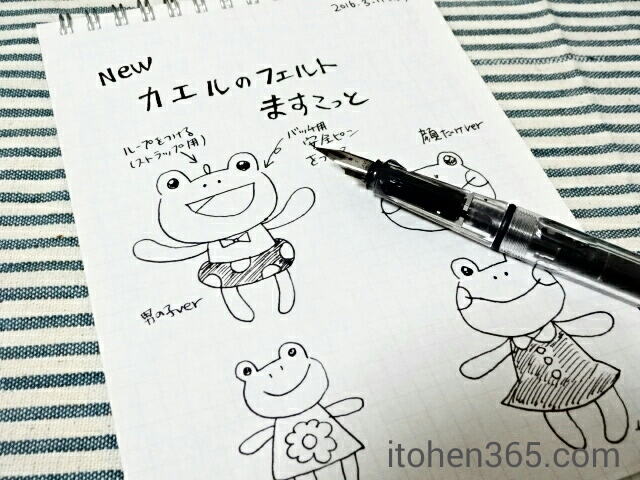 New
カエルのフェルト
ますこっと
ループをつける
(ストラップ用)
バッチ用
安全ピン
顔だけver
男の子ver
itohen365.com